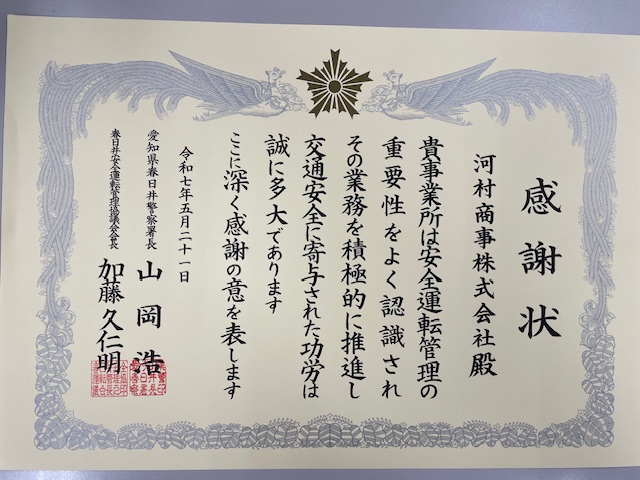 感謝状
河村商事株式会社殿
貴事業所は安全運転管理の
重要性をよく認識され
その業務を積極的に推進し
交通安全に寄与された功労は
誠に多大であります
ここに深く感謝の意を表します
令和七年五月二十一日
愛知県春日井警察署長 山岡浩
春日井安全運転管理協議会会長 加藤久仁明